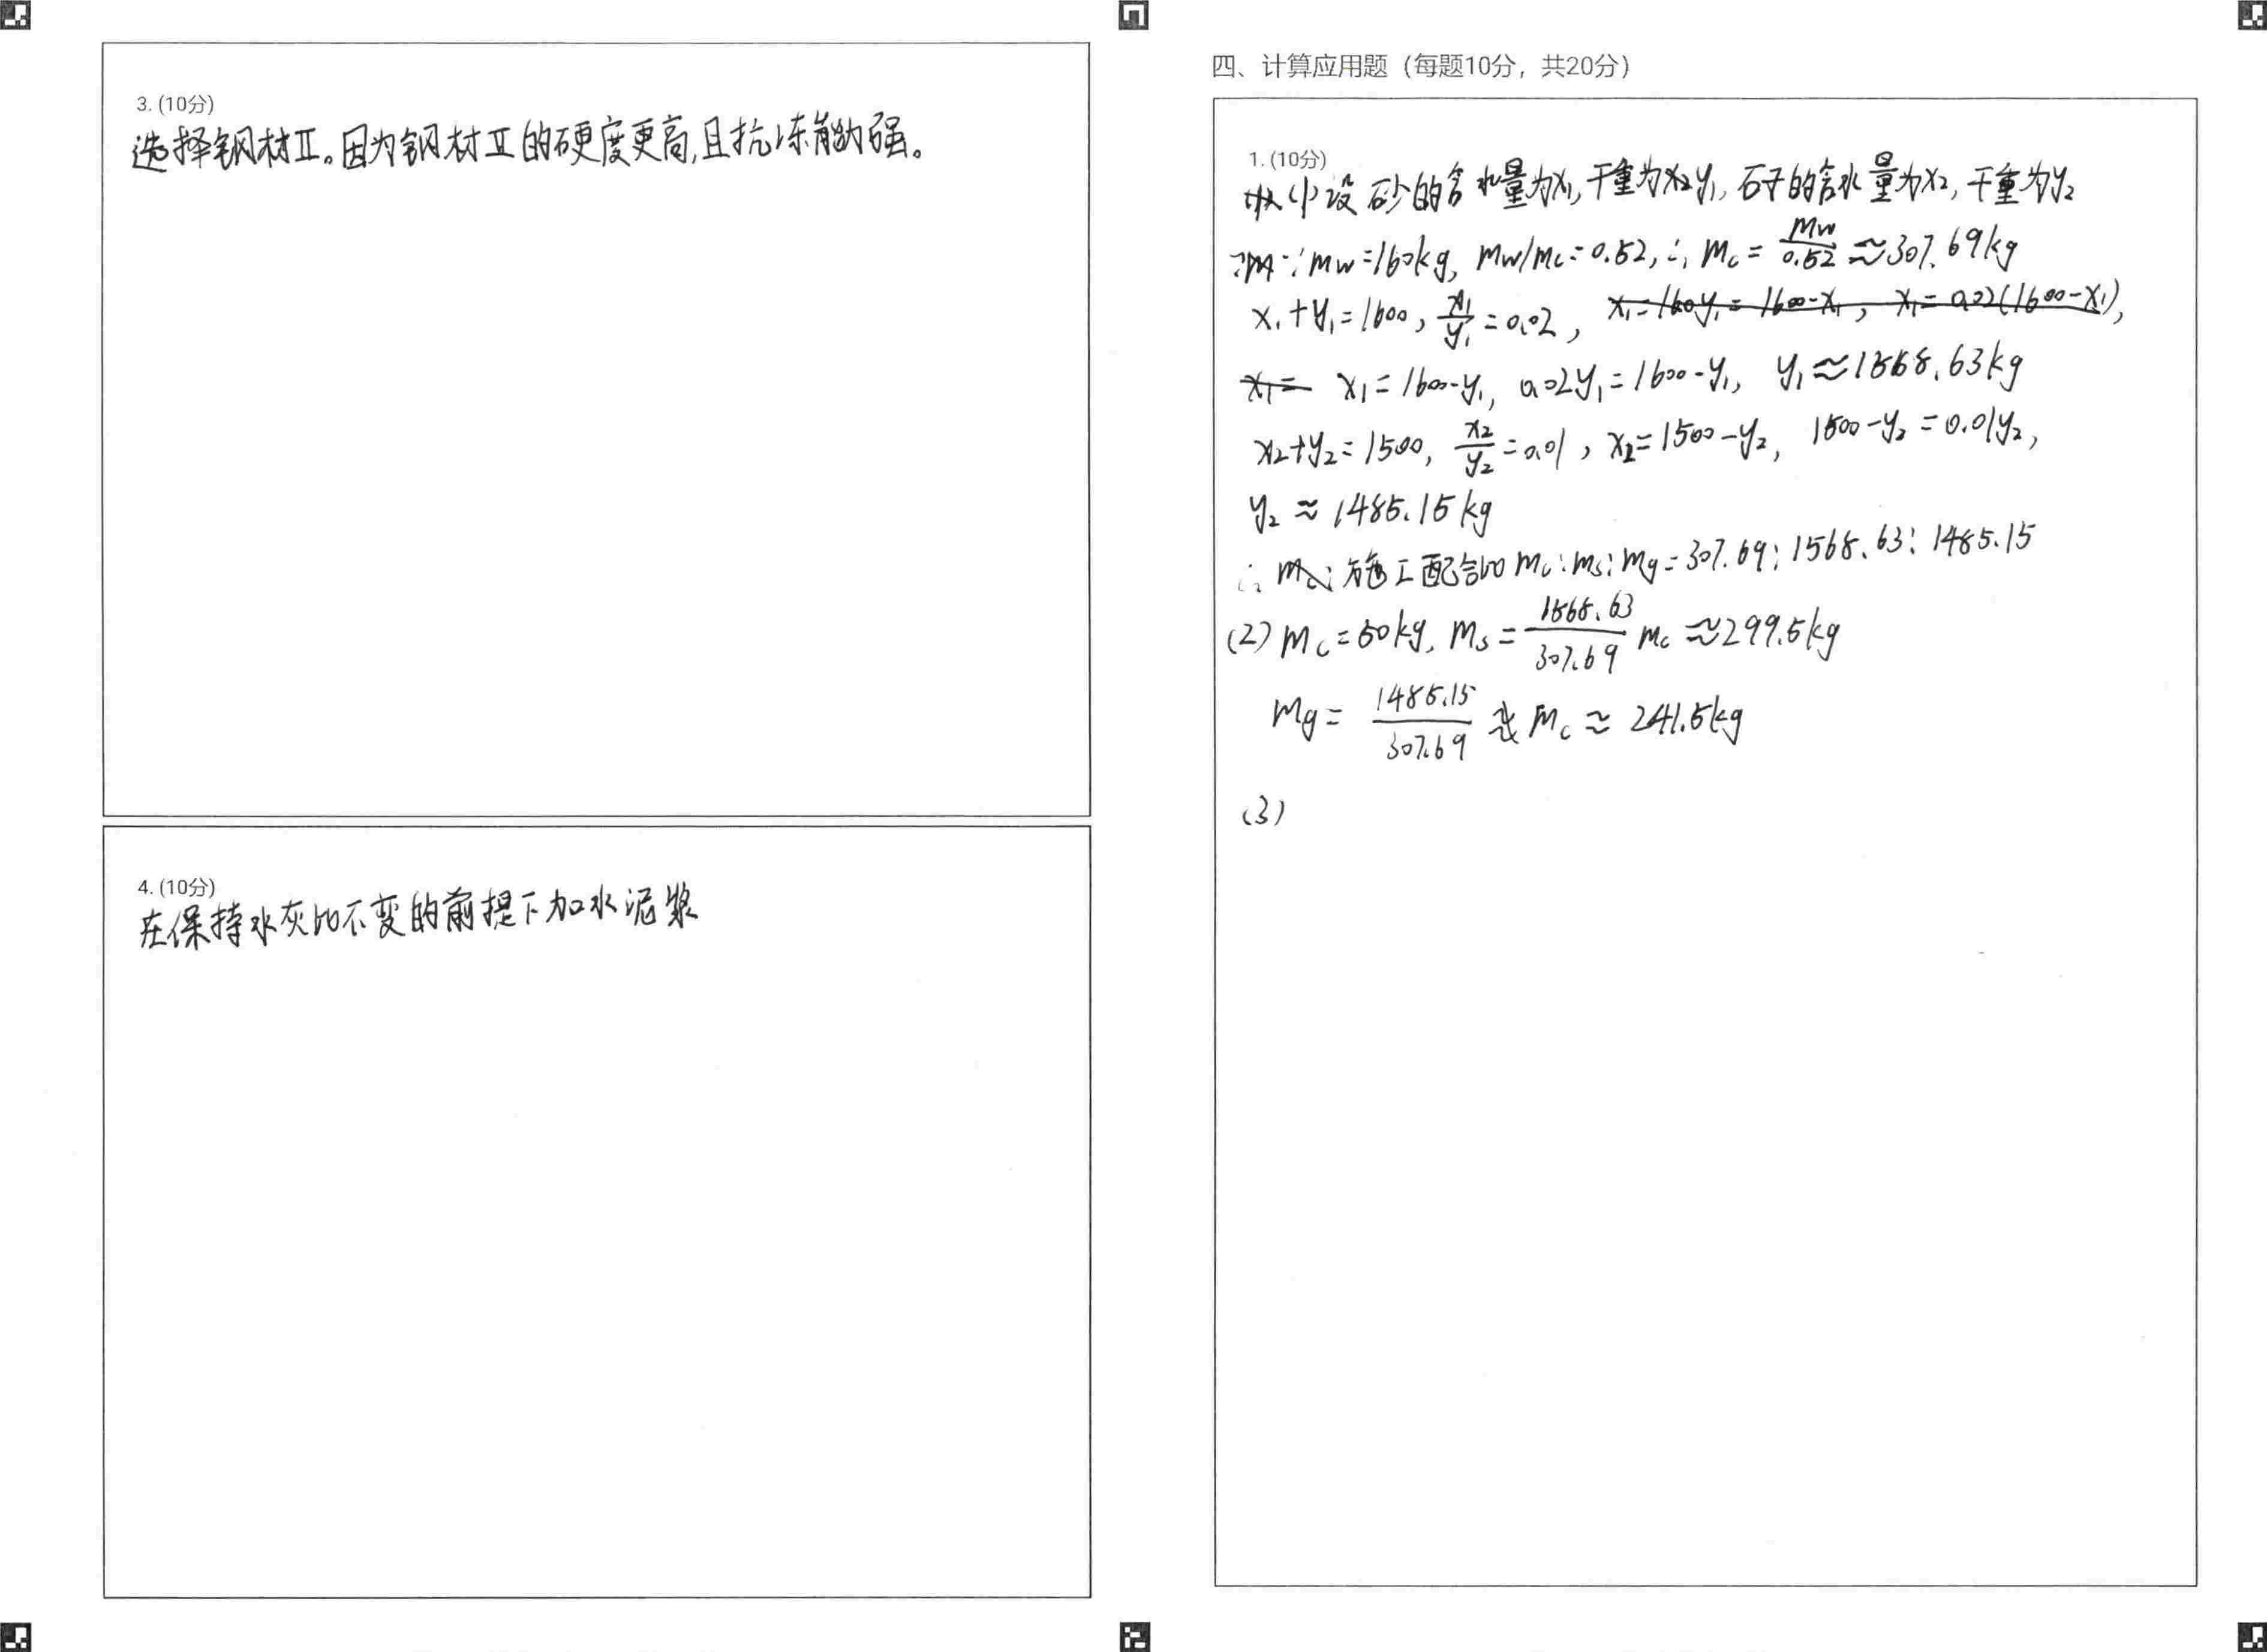 3. (10分)
选择钢材Ⅱ。因为钢材Ⅱ的硬度更高,且抗冻能力强。
4. (10分)
在保持水灰比不变的前提下加水泥浆
四、计算应用题（每题10分，共20分）
1. (10分)
(1)设砂的含水量为x₁,干重为y₁,石子的含水量为x₂,干重为y₂
∵mw=160kg, mw/mc=0.52,∴mc=mw/0.52≈307.69kg
x₁+y₁=1600, x₁/y₁=0.02, x₁=160y₁=1600-x₁, x₁=0.02(1600-x₁),
x₁= x₁=1600-y₁, 0.02y₁=1600-y₁, y₁≈1568.63kg
x₂+y₂=1500, x₂/y₂=0.01, x₂=1500-y₂, 1500-y₂=0.01y₂,
y₂≈1485.15kg
∴施工配合比mc:ms:mg=307.69:1568.63:1485.15
(2)mc=50kg, ms=1568.63/307.69 mc≈299.5kg
mg=1485.15/307.69 mc≈241.5kg
(3)